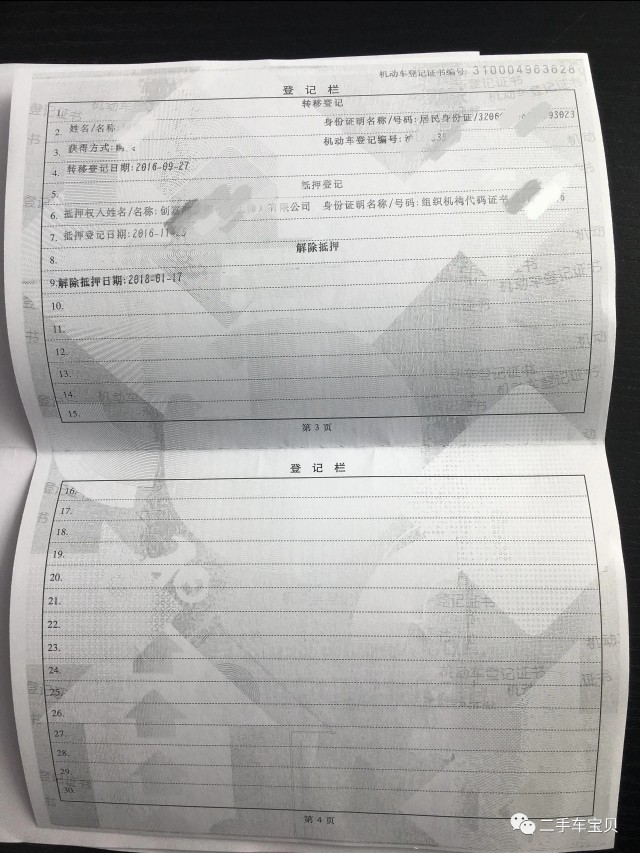 机动车登记证书编号: 310004983628
登 记 栏
1. 转移登记
2. 姓名/名称 身份证明名称/号码:居民身份证/3206 93023
3. 获得方式: 机动车登记编号:
4. 转移登记日期:2016-09-27
5. 抵押登记
6. 抵押权人姓名/名称: 有限公司 身份证明名称/号码:组织机构代码证书
7. 抵押登记日期:2016-11-
8. 解除抵押
9. 解除抵押日期:2018-01-17
10.
11.
12.
13.
14.
15.
第 3 页
登 记 栏
16.
17.
18.
19.
20.
21.
22.
23.
24.
25.
26.
27.
28.
29.
30.
第 4 页
二手车宝贝